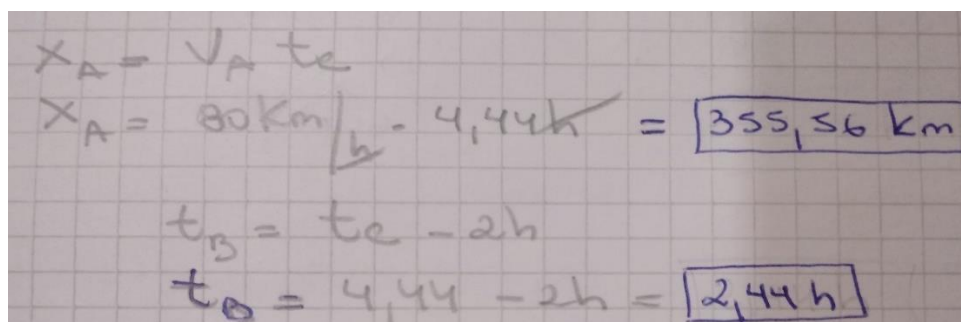 x_A = V_A te
x_A = 80 Km/h · 4,44h = 355,56 km
t_B = te - 2h
t_B = 4,44 - 2h = 2,44 h